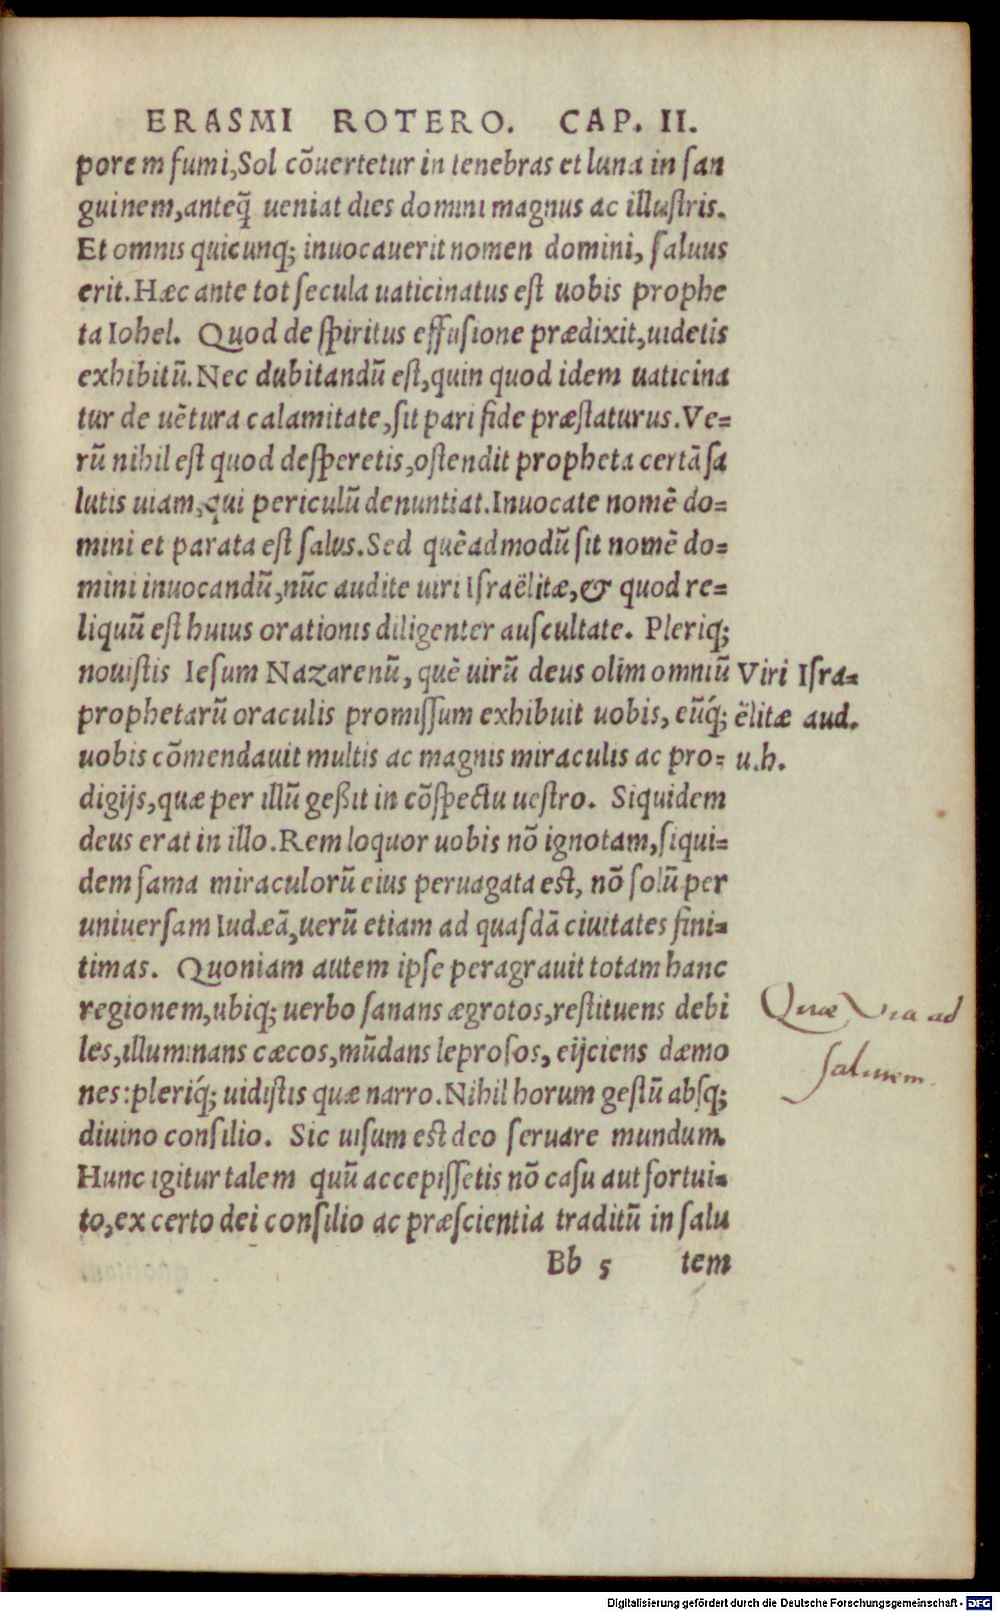 ERASMI ROTERO. CAP. II.
porem fumi, Sol cõuertetur in tenebras et luna in san
guinem, anteq̃ ueniat dies domini magnus ac illustris.
Et omnis quicunq; inuocauerit nomen domini, saluus
erit. Hæc ante tot secula uaticinatus est uobis prophe
ta Iohel. Quod de spiritus effusione prædixit, uidetis
exhibitũ. Nec dubitandũ est, quin quod idem uaticina
tur de uẽtura calamitate, sit pari fide præstaturus. Ve=
rũ nihil est quod desperetis, ostendit propheta certã sa
lutis uiam, qui periculũ denuntiat. Inuocate nomẽ do=
mini et parata est salus. Sed quẽadmodũ sit nomẽ do=
mini inuocandũ, nũc audite uiri Israëlitæ, & quod re=
liquũ est huius orationis diligenter auscultate. Pleriq;
nouistis Iesum Nazarenũ, quẽ uirũ deus olim omniũ
prophetarũ oraculis promissum exhibuit uobis, eũq́;
uobis cõmendauit multis ac magnis miraculis ac pro=
digijs, quæ per illũ geßit in cõspectu uestro. Siquidem
deus erat in illo. Rem loquor uobis nõ ignotam, siqui=
dem fama miraculorũ eius peruagata est, nõ solũ per
uniuersam Iudæã, uerũ etiam ad quasdã ciuitates fini=
timas. Quoniam autem ipse peragrauit totam hanc
regionem, ubiq; uerbo sanans ægrotos, restituens debi
les, illuminans cæcos, mũdans leprosos, eijciens dæmo
nes: pleriq́; uidistis quæ narro. Nihil horum gestũ absq;
diuino consilio. Sic uisum est deo seruare mundum.
Hunc igitur talem quũ accepissetis nõ casu aut fortui=
to, ex certo dei consilio ac præscientia traditũ in salu
Bb 5 tem
Viri Isra=
ëlitæ aud.
u.h.
Quæ Via ad
salutem.
Digitalisierung gefördert durch die Deutsche Forschungsgemeinschaft - DFG